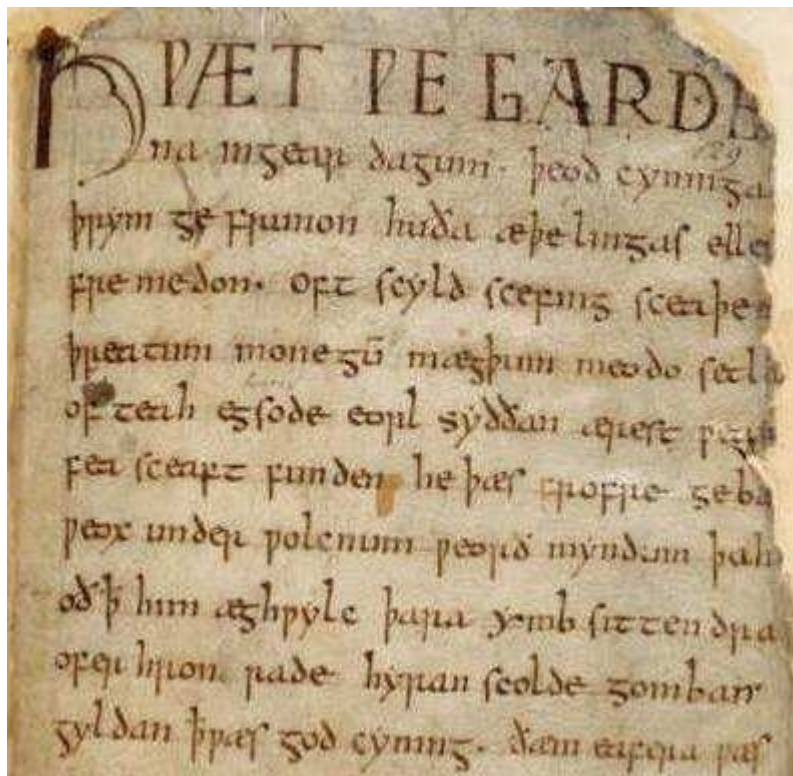 HǷÆT ǷE GARDE
na ingear dagum. þeod cyninga
þrym ge frunon huða æþelingas elle
fre medon. oft scyld scefing sceaþe
þreatum monegū mægþum meodo setla
of teah egsode eorl syððan ærest ƿear
fea sceaft funden he þæs frofre geba
ƿeox under ƿolcnum ƿeorð myndum þah
oð ꝥ him æghƿylc þara ymb sittendra
ofer hron rade hyran scolde gomban
gyldan þƿæs god cyning. ðæm eafera ƿæs